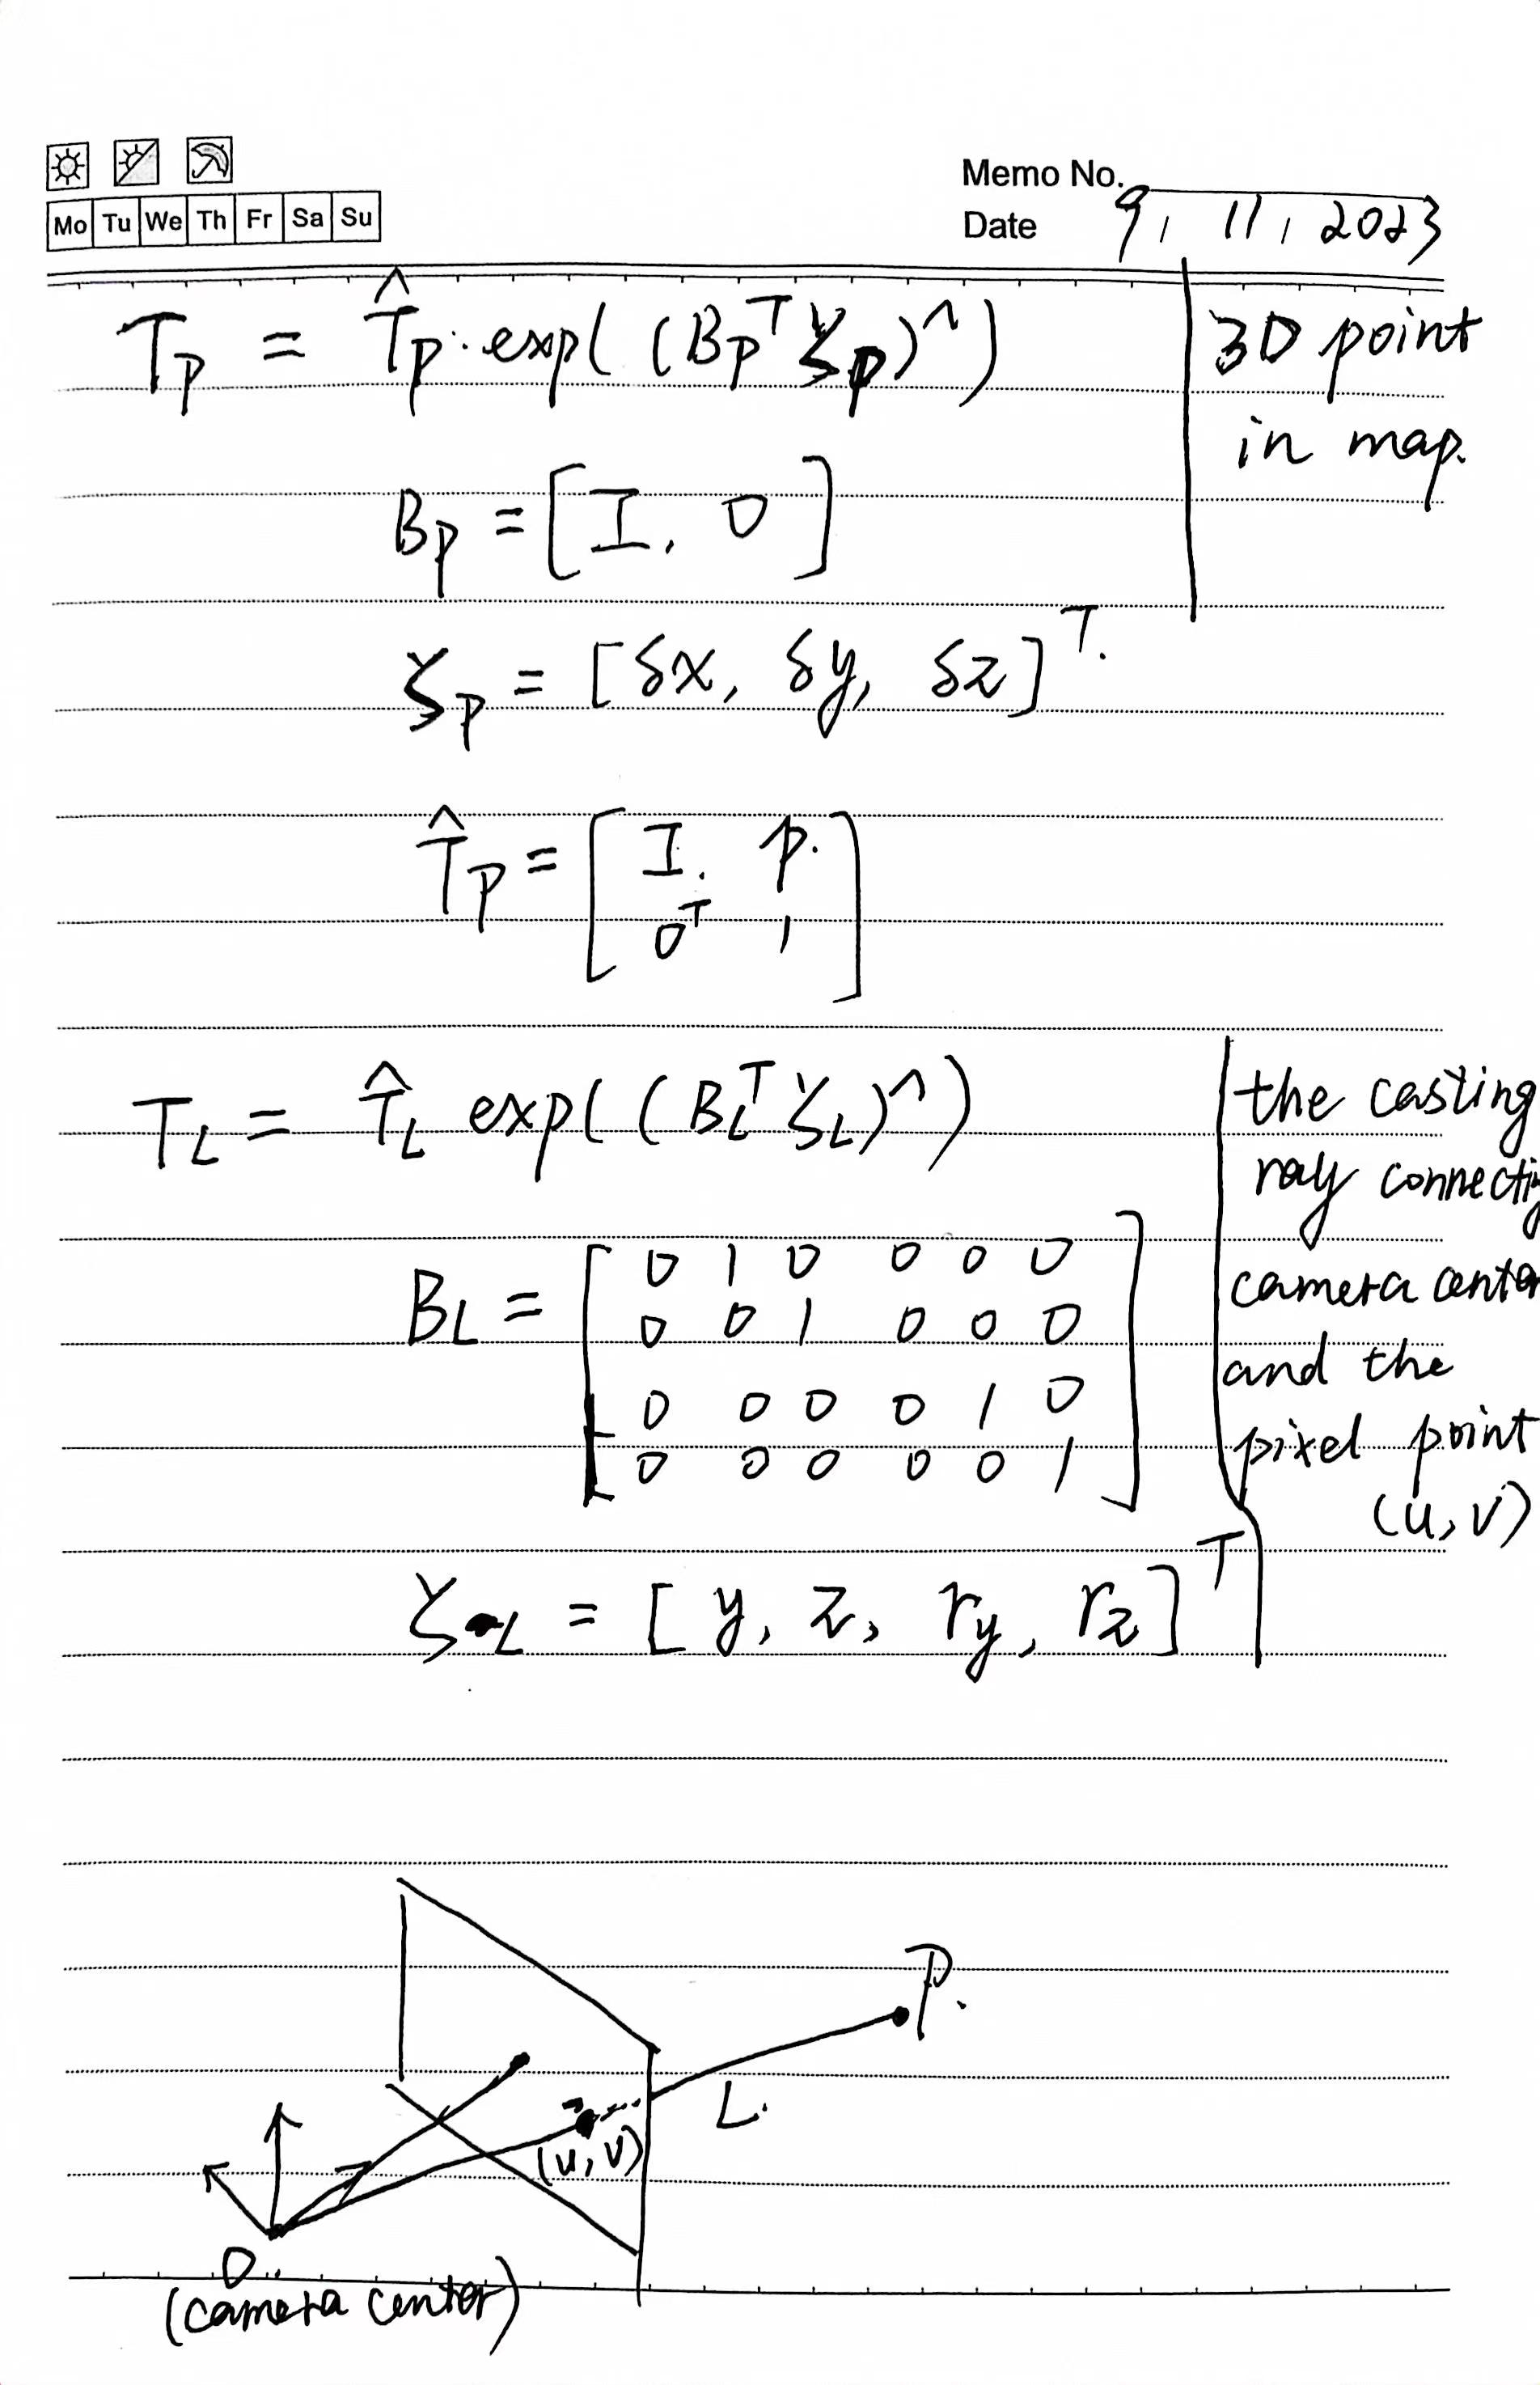 Memo No.
Mo Tu We Th Fr Sa Su
Date 9, 11, 2023
T_p = T̂_p · exp( (B_p^T ξ_p)^∧ )
3D point
in map.
B_p = [ I, 0 ]
ξ_p = [ δx, δy, δz ]^T.
T̂_p = [ I. p.
0^T 1 ]
T_L = T̂_L exp( (B_L^T ξ_L)^∧ )
the casting
ray connecti
camera center
and the
pixel point
(u, v)
B_L = [ 0 1 0 0 0 0
0 0 1 0 0 0
0 0 0 0 1 0
0 0 0 0 0 1 ]
ξ_L = [ y, z, r_y, r_z ]^T
P.
L.
(u, v)
O
(camera center)